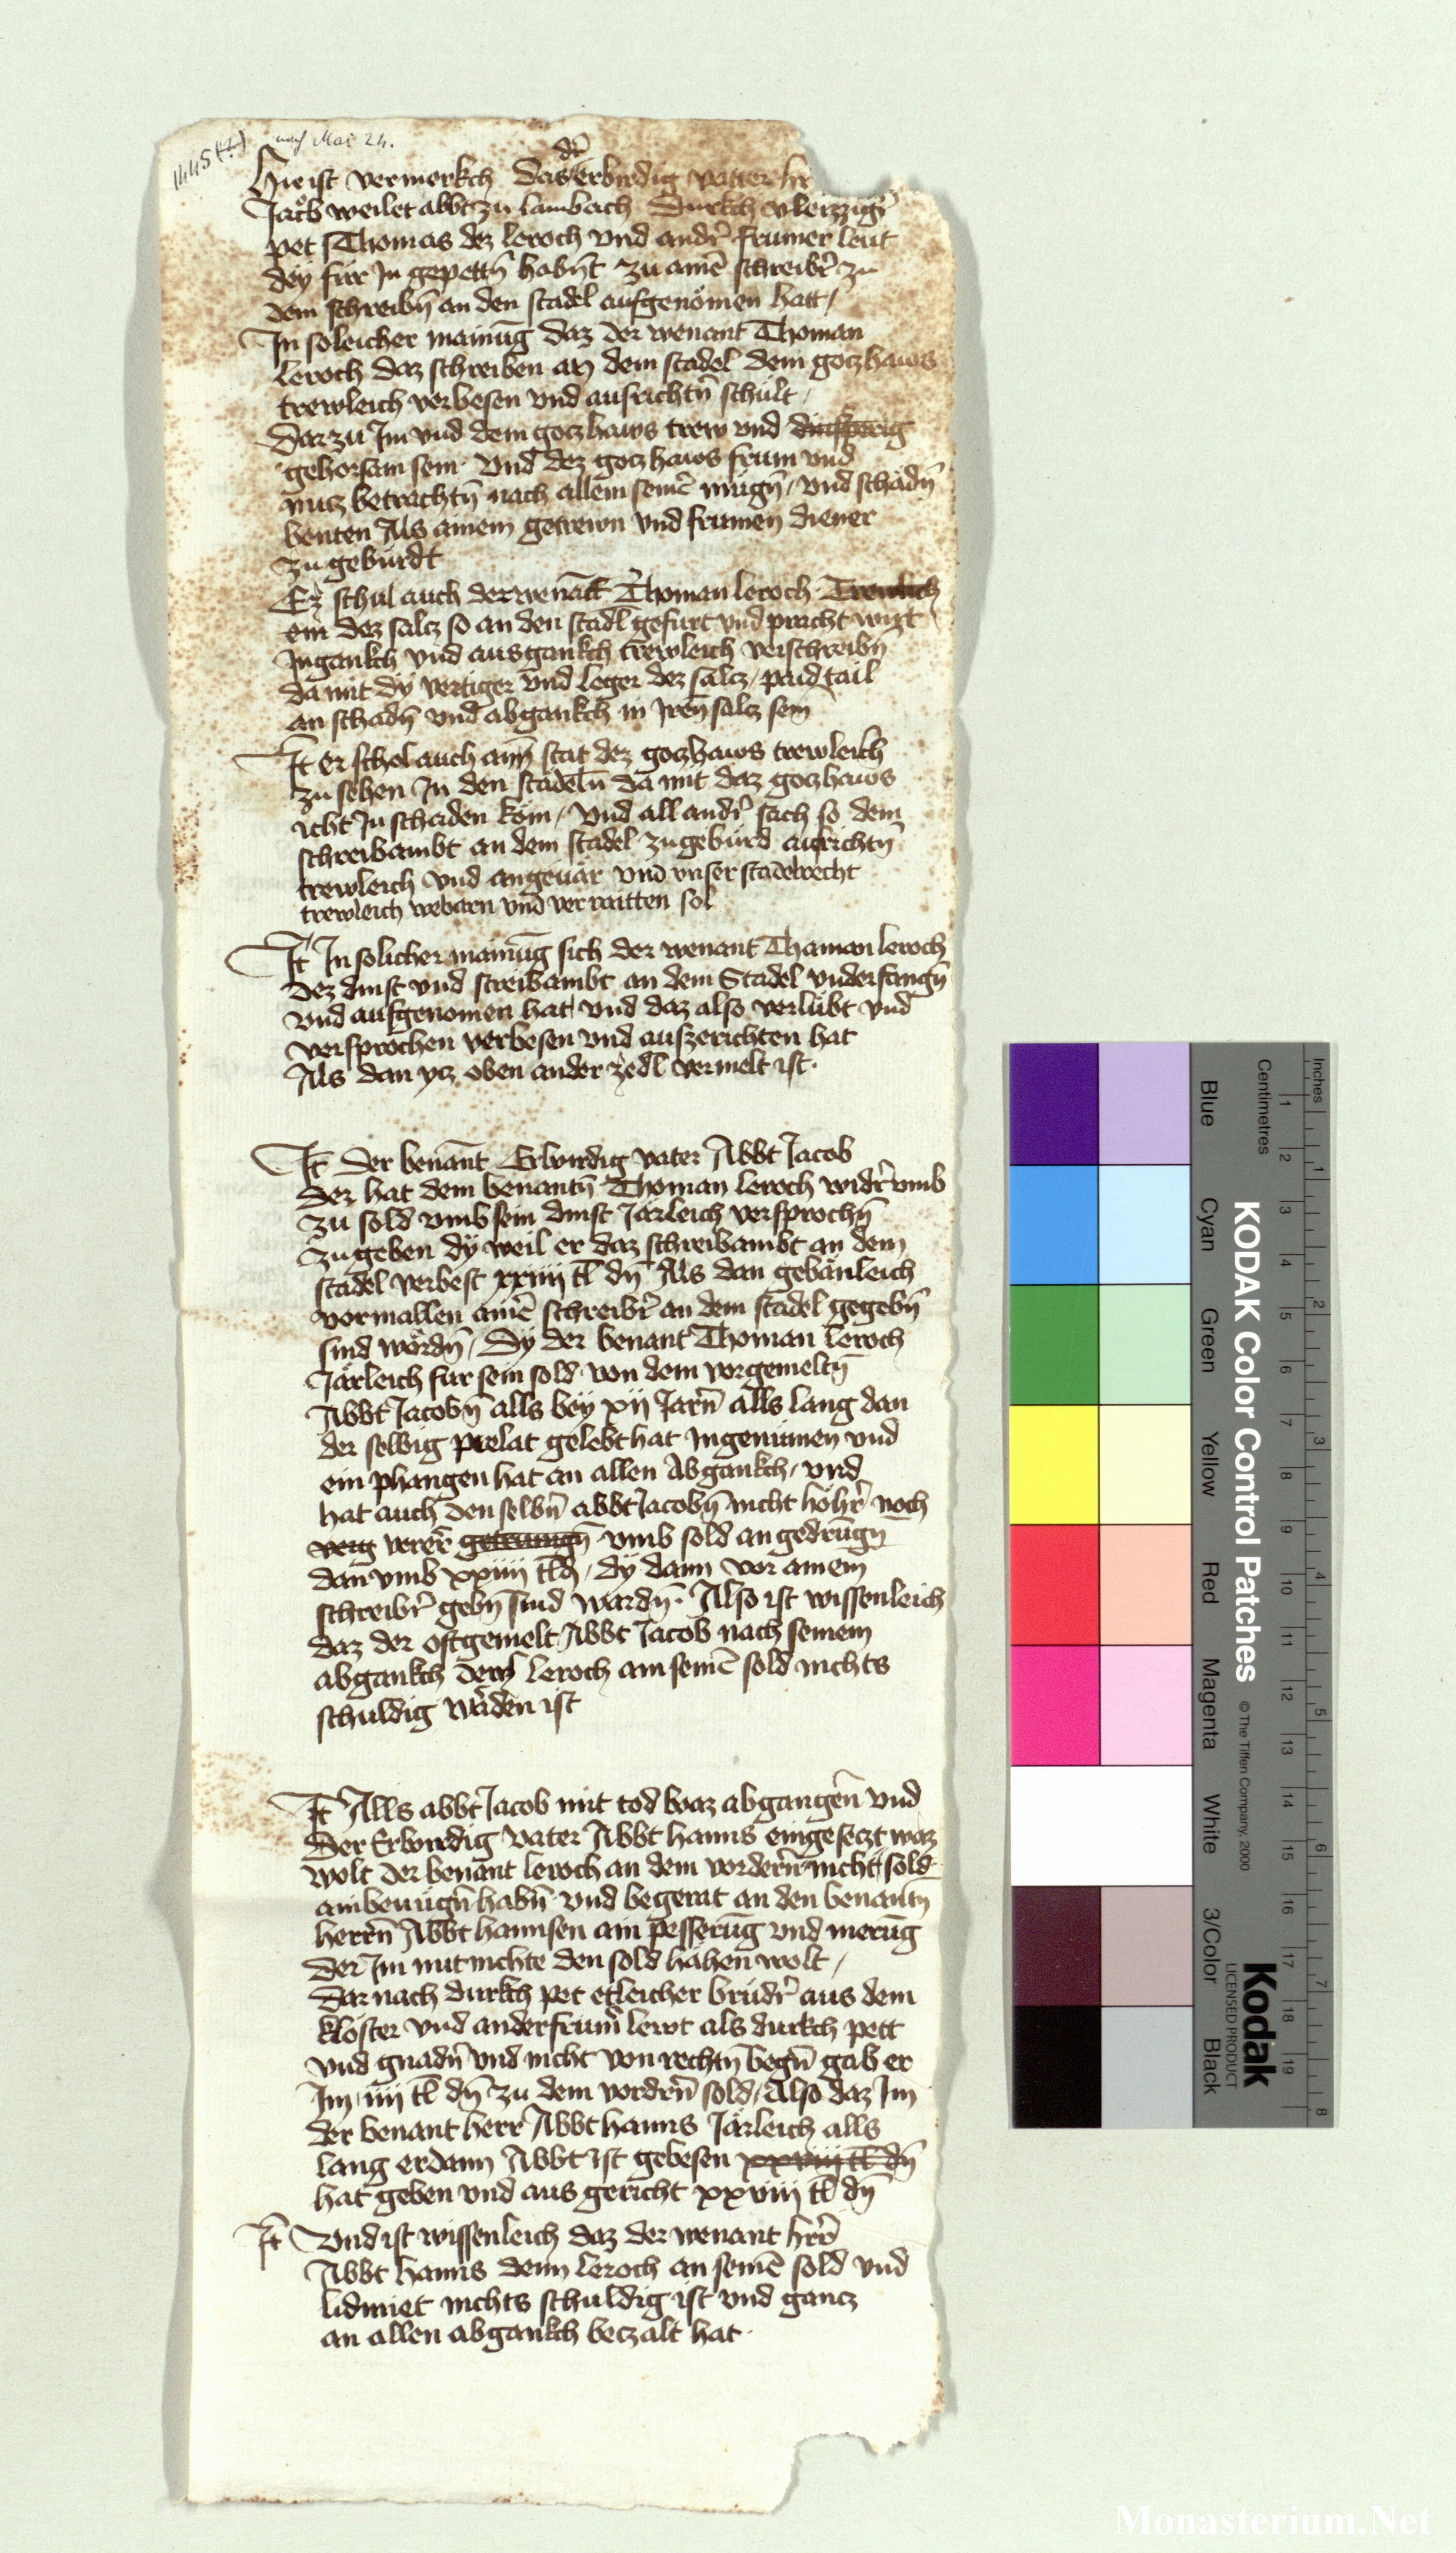 1445 (?) nach Mai 24.
Hie ist vermerkch Das der erbirdig vatter hr
Jacob weilet abbt zu lambach Durkch vleizzigr̄
pet Thomas dez leroch vnd andr̄ frumer leut
dÿ für In gepettn̄ habn̄t zu aīne schreibr̄ zu
Dem schreibn̄ an den stadel aufgenomen hatt /
In soleicher mainūg daz der wenant Thoman
leroch daz schreiben an dem stadel dem goczhaws
trewleich verbesen vnd ausrichtn̄ schult /
Darzu Im vnd dem goczhaws trew vnd
gehorsam sein vnd dez goczhaws frum vnd
nucz betrachtn̄ nach allem seinē mügn̄ / vnd schadn̄
benten Als ainem getrewn vnd frumen diener
zu gebürdt
Er schul auch der wenāt Thoman leroch Trewlich
ein dez salcz so an den stadl gefurt vnd pracht wirt
Ingankch vnd ausgankch trewleich verschreibn̄
da mit dÿ vertiger vnd leger dez salcz / paid tail
an schadn̄ vnd abgankch in Iren salcz sein
It̄ er schol auch ann̄ stat dez goczhaws trewleich
zu sehen In den stadeln̄ da mit daz goczhaws
icht In schaden köm / vnd all andr̄ sach so dem
schreibambt an dem stadel zu gebürd ausrichtn̄
trewleich vnd angeuär vnd vnser stadelrecht
trewleich webarn vnd verraitten sol
It̄ In solicher mainūg sich der wenant Thaman leroch
Dez dinst vnd screibambt an dem Stadel vnderfangn̄
vnd aufgenomen hat vnd daz also verlübt vnd
versprochen verbesen vnd auszerichten hat
Als dan ycz oben an der zedl vermelt ist
It̄ der benant Erbirdig vater Abbt Jacob
der hat dem benantn̄ Thoman leroch widr̄ vmb
zu sold vmb sein dinst Järleich versprochn̄
zu geben dÿ weil er daz schreibambt an dem
stadel verbest xxiiij tl dn̄ Als dan gebänleich
vormallen ainē schreibr̄ an dem stadel gegebn̄
sind wordn̄ / Dÿ der benant Thoman leroch
Järleich für sein sold von dem vorgemeltn̄
Abbt Jacobn̄ alls beÿ xij Jarn̄ alls lang dan
der selbig prelat gelebt hat Ingenumen vnd
ein phangen hat an allen Abgankch / vnd
hat auch den selbn̄ abbt Jacobn̄ nicht höhr̄ noch
verrer vmb sold an gedrūgn
dan vmb xxiiij tl d̄ / dÿ dann vor ainem
schreibr̄ gebn̄ sind wardn̄ Also ist wissenleich
daz der oftgemelt Abbt Jacob nach seinem
abgankch dem leroch an seinē sold nichts
schuldig wården ist
It̄ Alls abbt Jacob mit tod waz abgangen̄ vnd
Der Erbirdig vater Abbt hanns eingeseczt waz
wolt der benant leroch an dem vordern̄ nicht sold
ain benügn̄ habn̄ vnd begerat an den benantn̄
herrn̄ Abbt hannsen ain pesserūg vnd merūg
der Im mit nichte den sold hähen wolt /
Dar nach durkch pet etleicher brüdr̄ aus dem
kloster vnd ander frum̄ lewt als durkch pett
vnd gnadn̄ vnd nicht von rechtn̄ begn̄ gab er
Im iiij tl dn̄ zu dem vordrn̄ sold / Also daz Im
der benant herr Abbt hanns Järleich alls
lang er dann Abbt ist gebesen xxviij tl dn̄
hat geben vnd aus gericht xxviij tl dn̄
It̄ Vnd ist wissenleich daz der wenant hr̄r
Abbt hanns dem leroch an seinē sold vnd
lidmiet nichts schuldig ist vnd gancz
an allen abgankch beczalt hat
KODAK Color Control Patches © The Tiffen Company, 2000
Kodak
LICENSED PRODUCT
Inches 1 2 3 4 5 6 7 8
Centimetres 1 2 3 4 5 6 7 8 9 10 11 12 13 14 15 16 17 18 19
Blue Cyan Green Yellow Red Magenta White 3/Color Black
Monasterium.Net